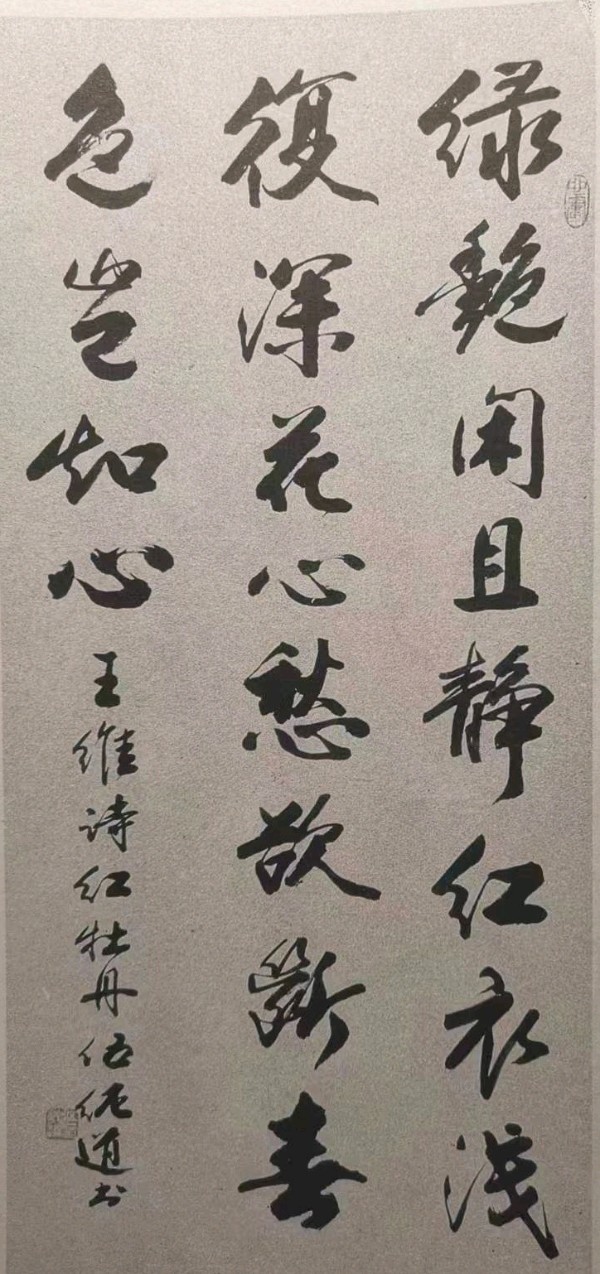 绿艳闲且静红衣浅
復深花心愁欲斷春
色岂知心
王维诗红牡丹伍纯道书